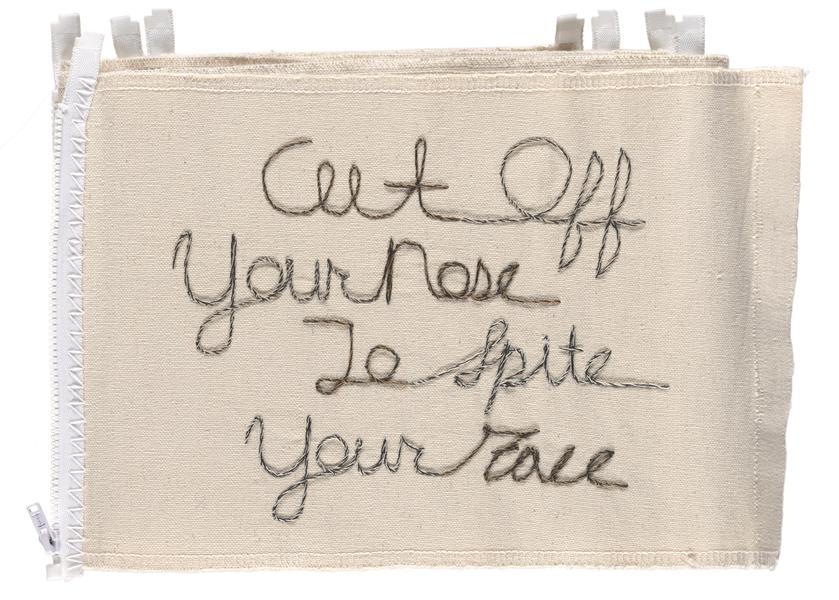 Cut Off
Your Nose
To Spite
Your Face